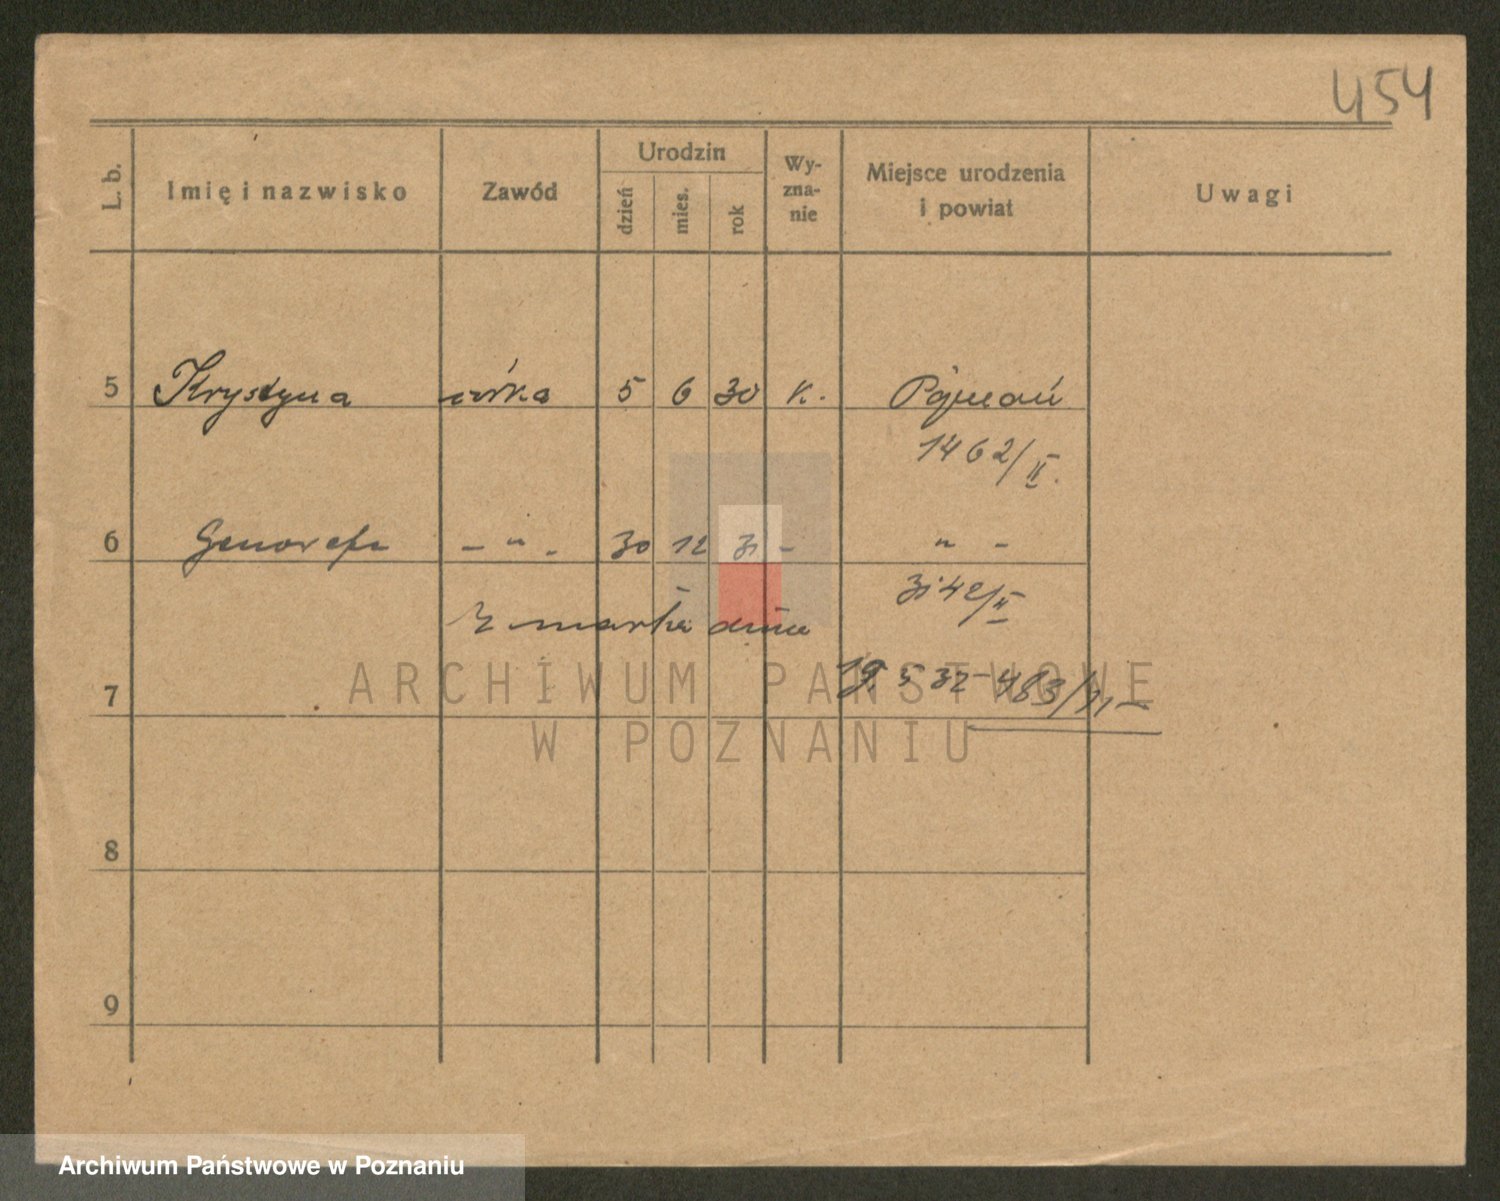 454
L. b.
Imię i nazwisko
Zawód
Urodzin
dzień
mies.
rok
Wy-
zna-
nie
Miejsce urodzenia
i powiat
Uwagi
5 Krystyna córka 5 6 30 k. Poznań
1462/II.
6 Genowefa - " - 30 12 31 - " -
3142/II
Zmarła dnia
19. 5 32 - 483/VI
7
8
9
ARCHIWUM PAŃSTWOWE
W POZNANIU
Archiwum Państwowe w Poznaniu